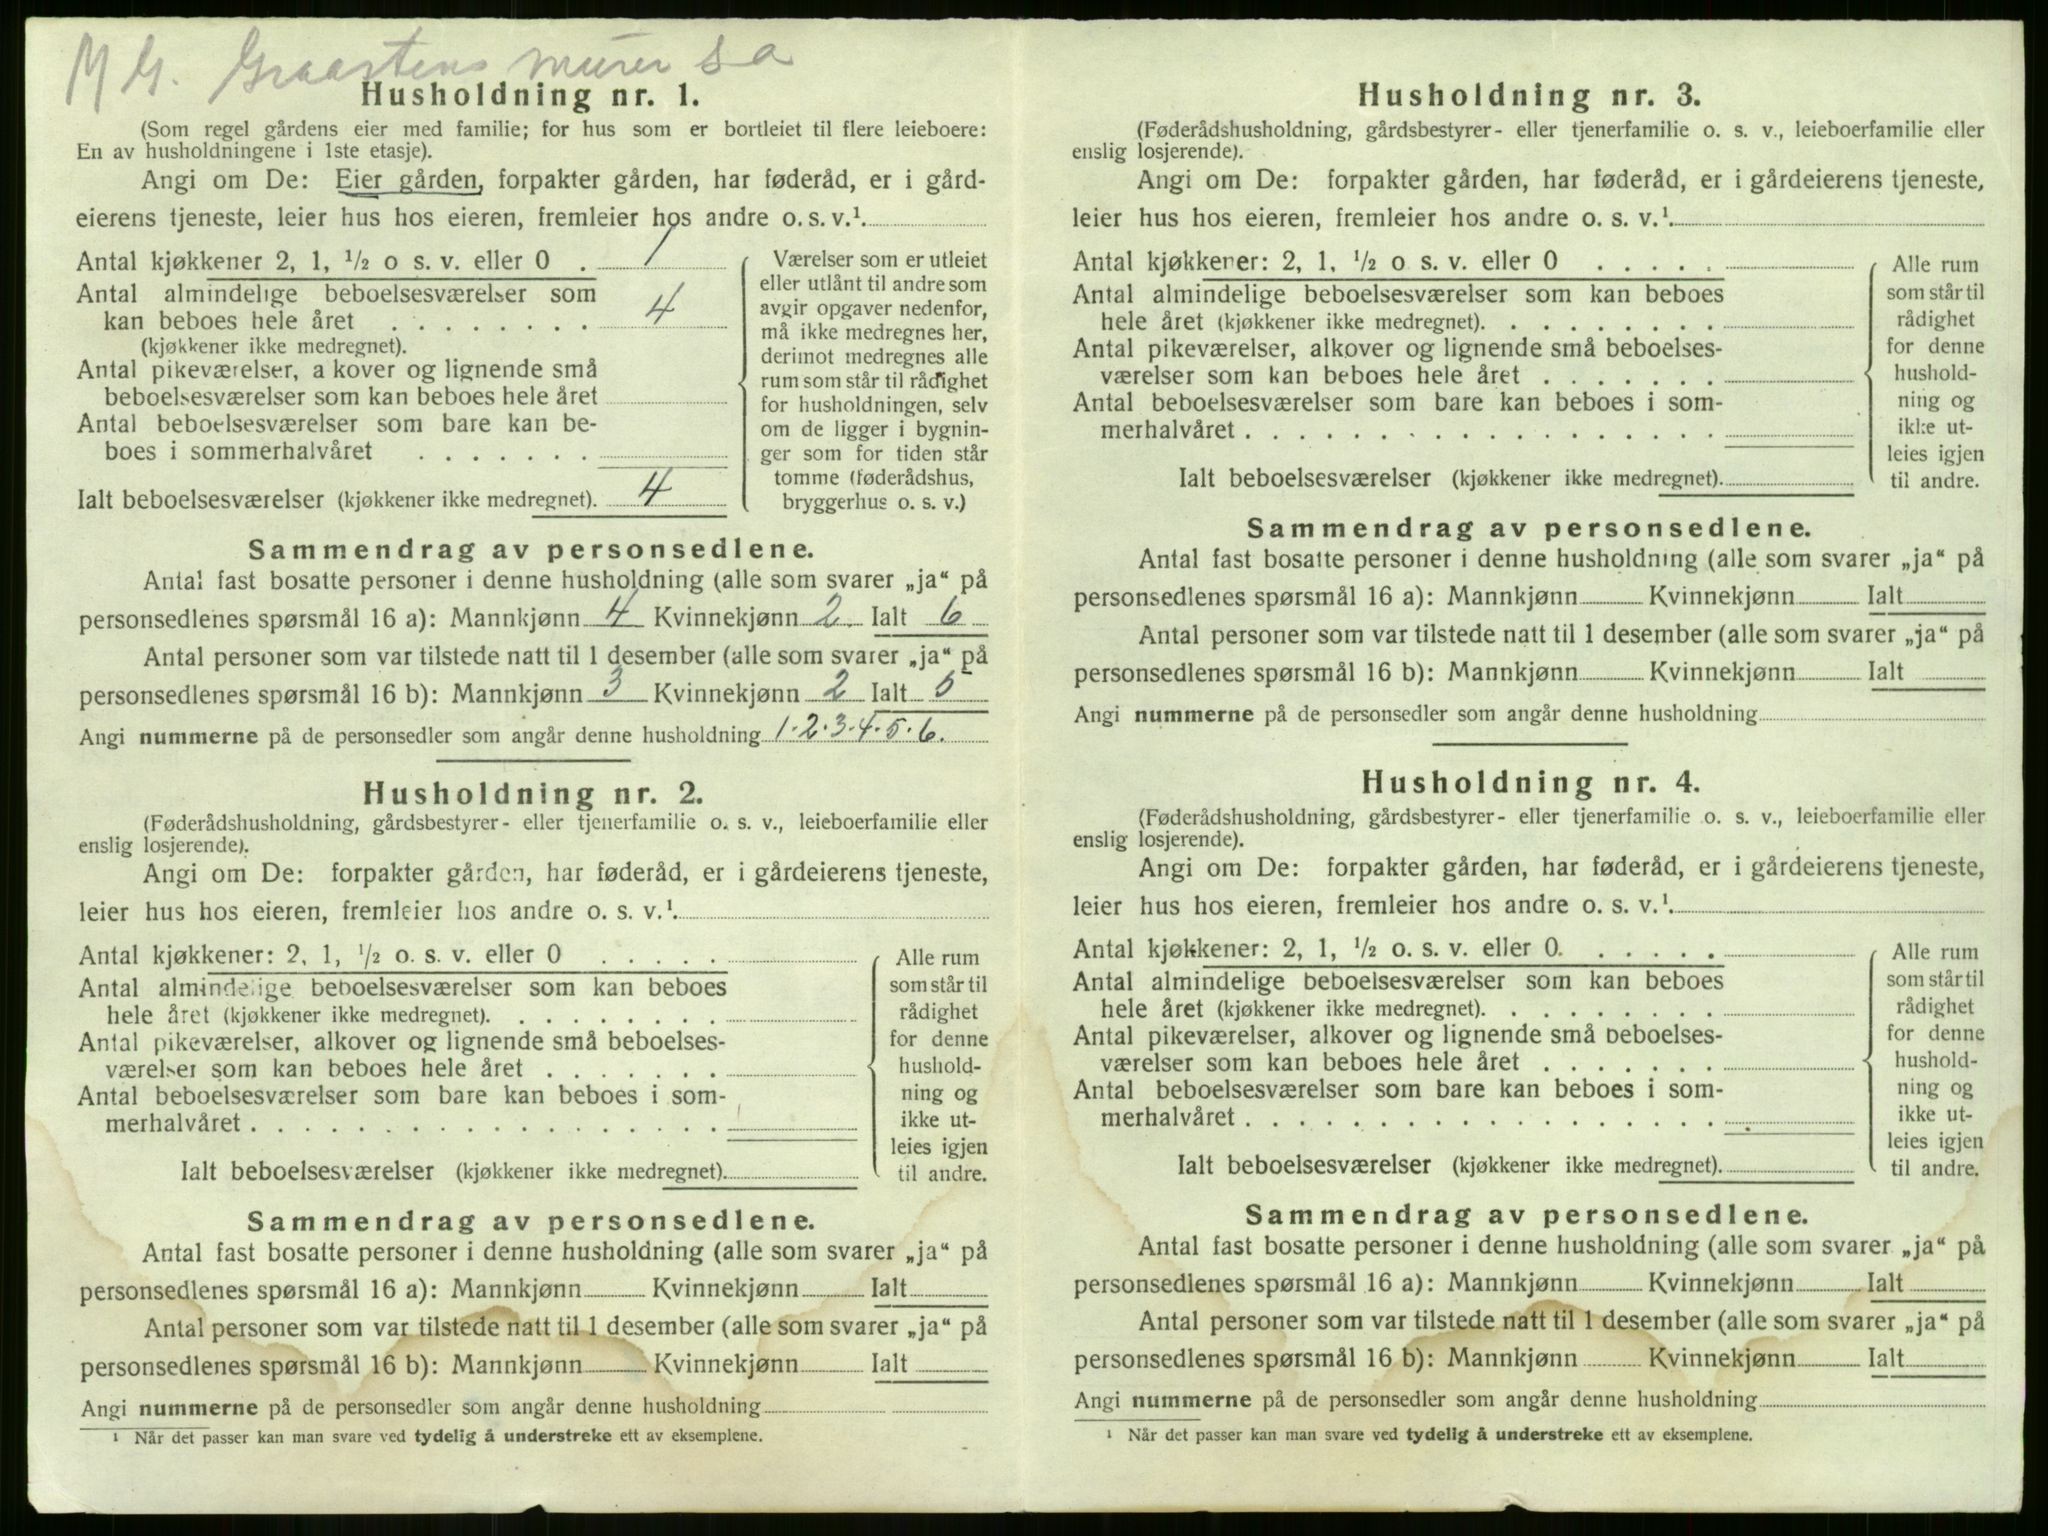 M G. Graasten murer s a
Husholdning nr. 1.
(Som regel gårdens eier med familie; for hus som er bortleiet til flere leieboere:
En av husholdningene i 1ste etasje).
Angi om De: Eier gården, forpakter gården, har føderåd, er i gård-
eierens tjeneste, leier hus hos eieren, fremleier hos andre o. s. v.¹
Antal kjøkkener 2, 1, ½ o s. v. eller 0 . 1
Antal almindelige beboelsesværelser som
kan beboes hele året . . . . . . . . 4
(kjøkkener ikke medregnet).
Antal pikeværelser, a kover og lignende små
beboelsesværelser som kan beboes hele året
Antal beboelsesværelser som bare kan be-
boes i sommerhalvåret . . . . . . .
Ialt beboelsesværelser (kjøkkener ikke medregnet). 4
Værelser som er utleiet
eller utlånt til andre som
avgir opgaver nedenfor,
må ikke medregnes her,
derimot medregnes alle
rum som står til rådighet
for husholdningen, selv
om de ligger i bygnin-
ger som for tiden står
tomme (føderådshus,
bryggerhus o. s. v.)
Sammendrag av personsedlene.
Antal fast bosatte personer i denne husholdning (alle som svarer „ja“ på
personsedlenes spørsmål 16 a): Mannkjønn 4 Kvinnekjønn 2. Ialt 6
Antal personer som var tilstede natt til 1 desember (alle som svarer „ja“ på
personsedlenes spørsmål 16 b): Mannkjønn 3 Kvinnekjønn 2 Ialt 5
Angi nummerne på de personsedler som angår denne husholdning 1.2.3.4.5.6.
Husholdning nr. 2.
(Føderådshusholdning, gårdsbestyrer- eller tjenerfamilie o. s. v., leieboerfamilie eller
enslig losjerende).
Angi om De: forpakter gården, har føderåd, er i gårdeierens tjeneste,
leier hus hos eieren, fremleier hos andre o. s. v.¹
Antal kjøkkener: 2, 1, ½ o. s. v. eller 0 . . . . .
Antal almindelige beboelsesværelser som kan beboes
hele året (kjøkkener ikke medregnet). . . . . . . . .
Antal pikeværelser, alkover og lignende små beboelses-
værelser som kan beboes hele året . . . . . . .
Antal beboelsesværelser som bare kan beboes i som-
merhalvåret . . . . . . . . . . . . . . . . . .
Ialt beboelsesværelser (kjøkkener ikke medregnet).
Alle rum
som står til
rådighet
for denne
hushold-
ning og
ikke ut-
leies igjen
til andre.
Sammendrag av personsedlene.
Antal fast bosatte personer i denne husholdning (alle som svarer „ja“ på
personsedlenes spørsmål 16 a): Mannkjønn Kvinnekjønn Ialt
Antal personer som var tilstede natt til 1 desember (alle som svarer „ja“ på
personsedlenes spørsmål 16 b): Mannkjønn Kvinnekjønn Ialt
Angi nummerne på de personsedler som angår denne husholdning
¹ Når det passer kan man svare ved tydelig å understreke ett av eksemplene.
Husholdning nr. 3.
(Føderådshusholdning, gårdsbestyrer- eller tjenerfamilie o. s. v., leieboerfamilie eller
enslig losjerende).
Angi om De: forpakter gården, har føderåd, er i gårdeierens tjeneste,
leier hus hos eieren, fremleier hos andre o. s. v.¹
Antal kjøkkener: 2, 1, ½ o s. v. eller 0 . . . . .
Antal almindelige beboelsesværelser som kan beboes
hele året (kjøkkener ikke medregnet). . . . . . . . .
Antal pikeværelser, alkover og lignende små beboelses-
værelser som kan beboes hele året . . . . . . .
Antal beboelsesværelser som bare kan beboes i som-
merhalvåret . . . . . . . . . . . . . . . . . .
Ialt beboelsesværelser (kjøkkener ikke medregnet).
Alle rum
som står til
rådighet
for denne
hushold-
ning og
ikke ut-
leies igjen
til andre.
Sammendrag av personsedlene.
Antal fast bosatte personer i denne husholdning (alle som svarer „ja“ på
personsedlenes spørsmål 16 a): Mannkjønn Kvinnekjønn Ialt
Antal personer som var tilstede natt til 1 desember (alle som svarer „ja“ på
personsedlenes spørsmål 16 b): Mannkjønn Kvinnekjønn Ialt
Angi nummerne på de personsedler som angår denne husholdning
Husholdning nr. 4.
(Føderådshusholdning, gårdsbestyrer- eller tjenerfamilie o. s. v., leieboerfamilie eller
enslig losjerende).
Angi om De: forpakter gården, har føderåd, er i gårdeierens tjeneste,
leier hus hos eieren, fremleier hos andre o. s. v.¹
Antal kjøkkener: 2, 1, ½ o. s. v. eller 0. . . . . .
Antal almindelige beboelsesværelser som kan beboes
hele året (kjøkkener ikke medregnet). . . . . . . . .
Antal pikeværelser, alkover og lignende små beboelses-
værelser som kan beboes hele året . . . . . . .
Antal beboelsesværelser som bare kan beboes i som-
merhalvåret . . . . . . . . . . . . . . . . . .
Ialt beboelsesværelser (kjøkkener ikke medregnet).
Alle rum
som står til
rådighet
for denne
hushold-
ning og
ikke ut-
leies igjen
til andre.
Sammendrag av personsedlene.
Antal fast bosatte personer i denne husholdning (alle som svarer „ja“ på
personsedlenes spørsmål 16 a): Mannkjønn Kvinnekjønn Ialt
Antal personer som var tilstede natt til 1 desember (alle som svarer „ja“ på
personsedlenes spørsmål 16 b): Mannkjønn Kvinnekjønn Ialt
Angi nummerne på de personsedler som angår denne husholdning
¹ Når det passer kan man svare ved tydelig å understreke ett av eksemplene.